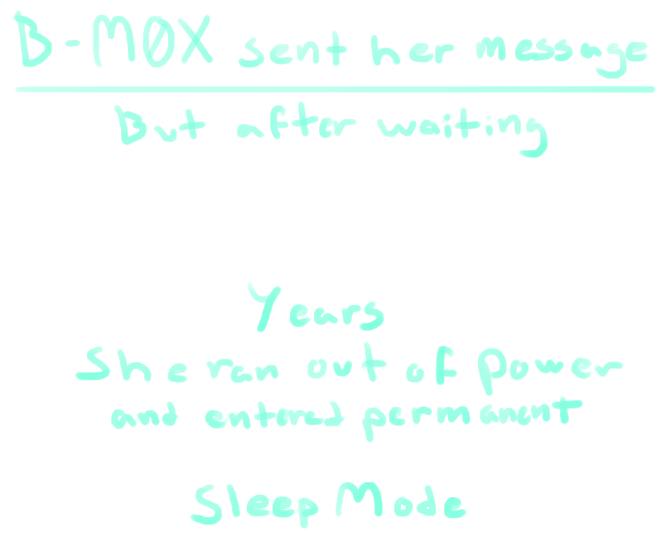 B-MØX sent her message
But after waiting
Years
She ran out of power
and entered permanent
Sleep Mode